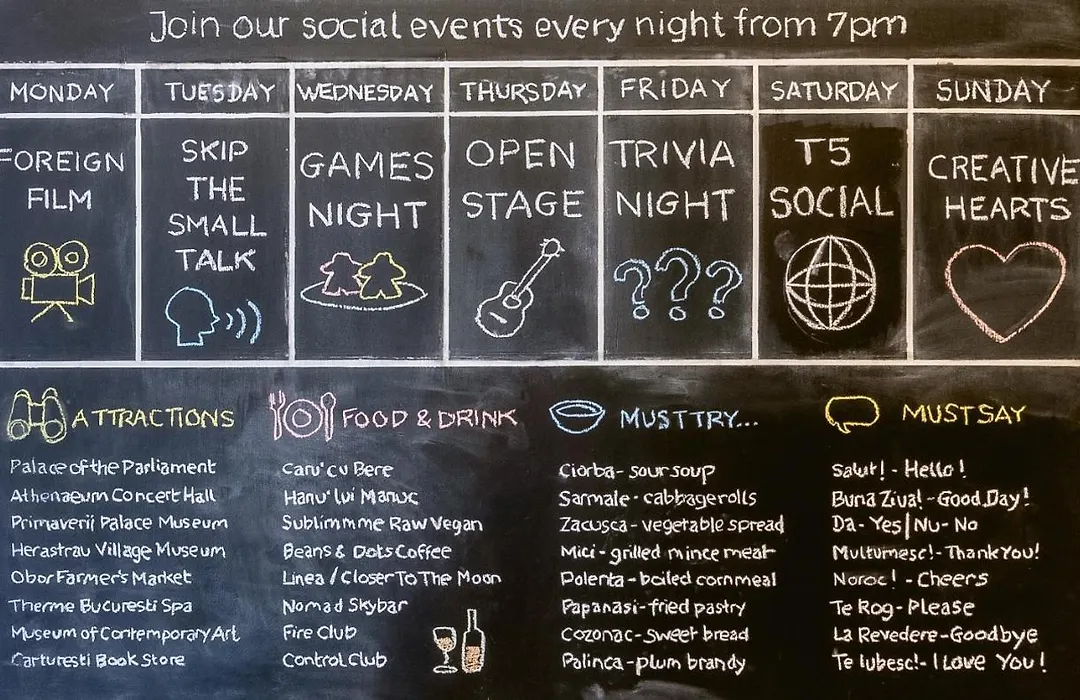 Join our social events every night from 7pm
MONDAY
TUESDAY
WEDNESDAY
THURSDAY
FRIDAY
SATURDAY
SUNDAY
FOREIGN
FILM
SKIP
THE
SMALL
TALK
GAMES
NIGHT
OPEN
STAGE
TRIVIA
NIGHT
T5
SOCIAL
CREATIVE
HEARTS
ATTRACTIONS
Palace of the Parliament
Athenaeum Concert Hall
Primaverii Palace Museum
Herastrau Village Museum
Obor Farmer's Market
Therme Bucuresti Spa
Museum of Contemporary Art
Carturesti Book Store
FOOD & DRINK
Caru' cu Bere
Hanu' lui Manuc
Sublimmme Raw Vegan
Beans & Dots Coffee
Linea / Closer To The Moon
Nomad Skybar
Fire Club
Control Club
MUST TRY...
Ciorba - sour soup
Sarmale - cabbage rolls
Zacusca - vegetable spread
Mici - grilled mince meat
Polenta - boiled cornmeal
Papanasi - fried pastry
Cozonac - sweet bread
Palinca - plum brandy
MUST SAY
Salut! - Hello!
Buna Ziua! - Good Day!
Da - Yes | Nu - No
Multumesc! - Thank You!
Noroc! - Cheers
Te Rog - Please
La Revedere - Goodbye
Te Iubesc! - I Love You!